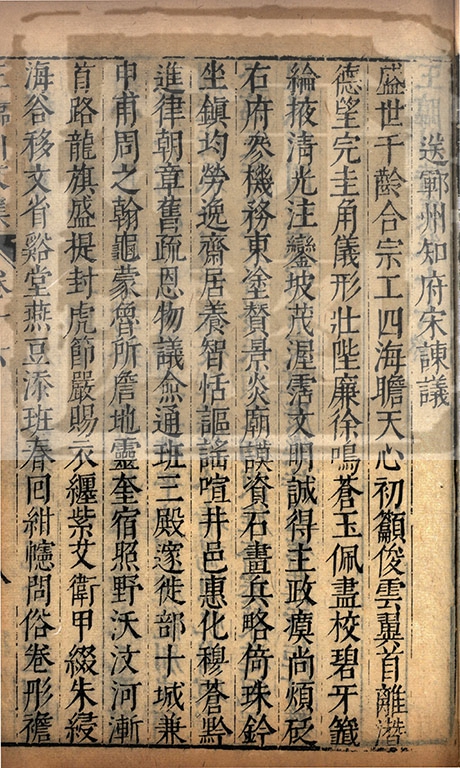 送鄆州知府宋諫議
盛世千齡合宗工四海瞻天心初籲俊雲翼首離潛
德望完圭角儀形壯陛廉徐鳴蒼玉佩盡校碧牙籤
綸掖清光注鑾坡茂渥霑文明誠得主政瘼尚煩砭
右府參機務東塗贊景炎廟謨資石畫兵略倚珠鈐
坐鎮均勞逸齋居養智恬謳謠喧井邑惠化穆蒼黔
進律朝章舊疏恩物議僉通班三殿邃徙部十城兼
申甫周之翰龜蒙魯所詹地靈奎宿照野沃汶河漸
首路龍旗盛提封虎節嚴賜衣纏紫艾衛甲綴朱綅
海谷移文省谿堂燕豆添班春回紺幰問俗卷彤襜